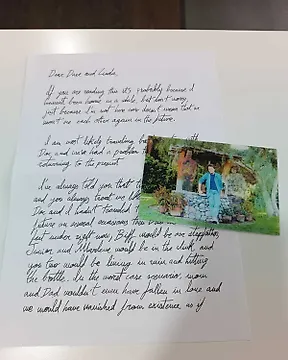 Dear Dave and Linda,
If you are reading this it's probably because I
haven't been home in a while, but don't worry,
just because I'm not here now doesn't mean that we
won't see each other again in the future.
I am most likely traveling
Doc, and we've had a problem
returning to the present.
I've always told you that
and you always
Doc and I hadn't traveled
future on several occasions
just under eight
Biff would be our stepfather,
Junior and Marlene would be in the clink, and
you two would be living in ruin and hitting
the bottle. In the worst case scenario, mom
and Dad wouldn't even have fallen in love and
we would have vanished from existence as if